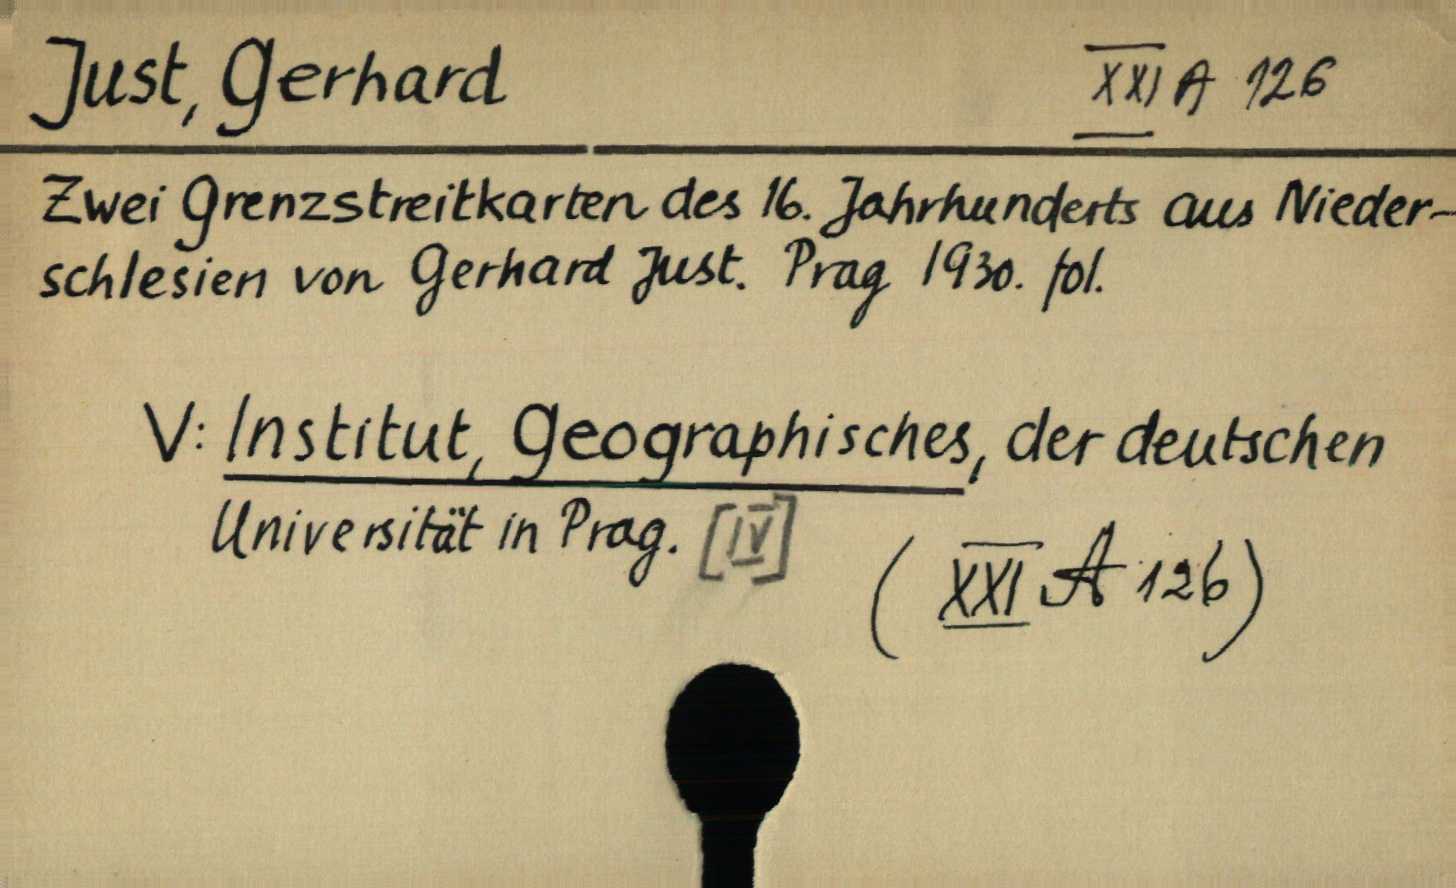 Just, Gerhard XXI A 126
Zwei Grenzstreitkarten des 16. Jahrhunderts aus Nieder-
schlesien von Gerhard Just. Prag 1930. fol.
V: Institut, Geographisches, der deutschen
Universität in Prag. [IV]
(XXI A 126)